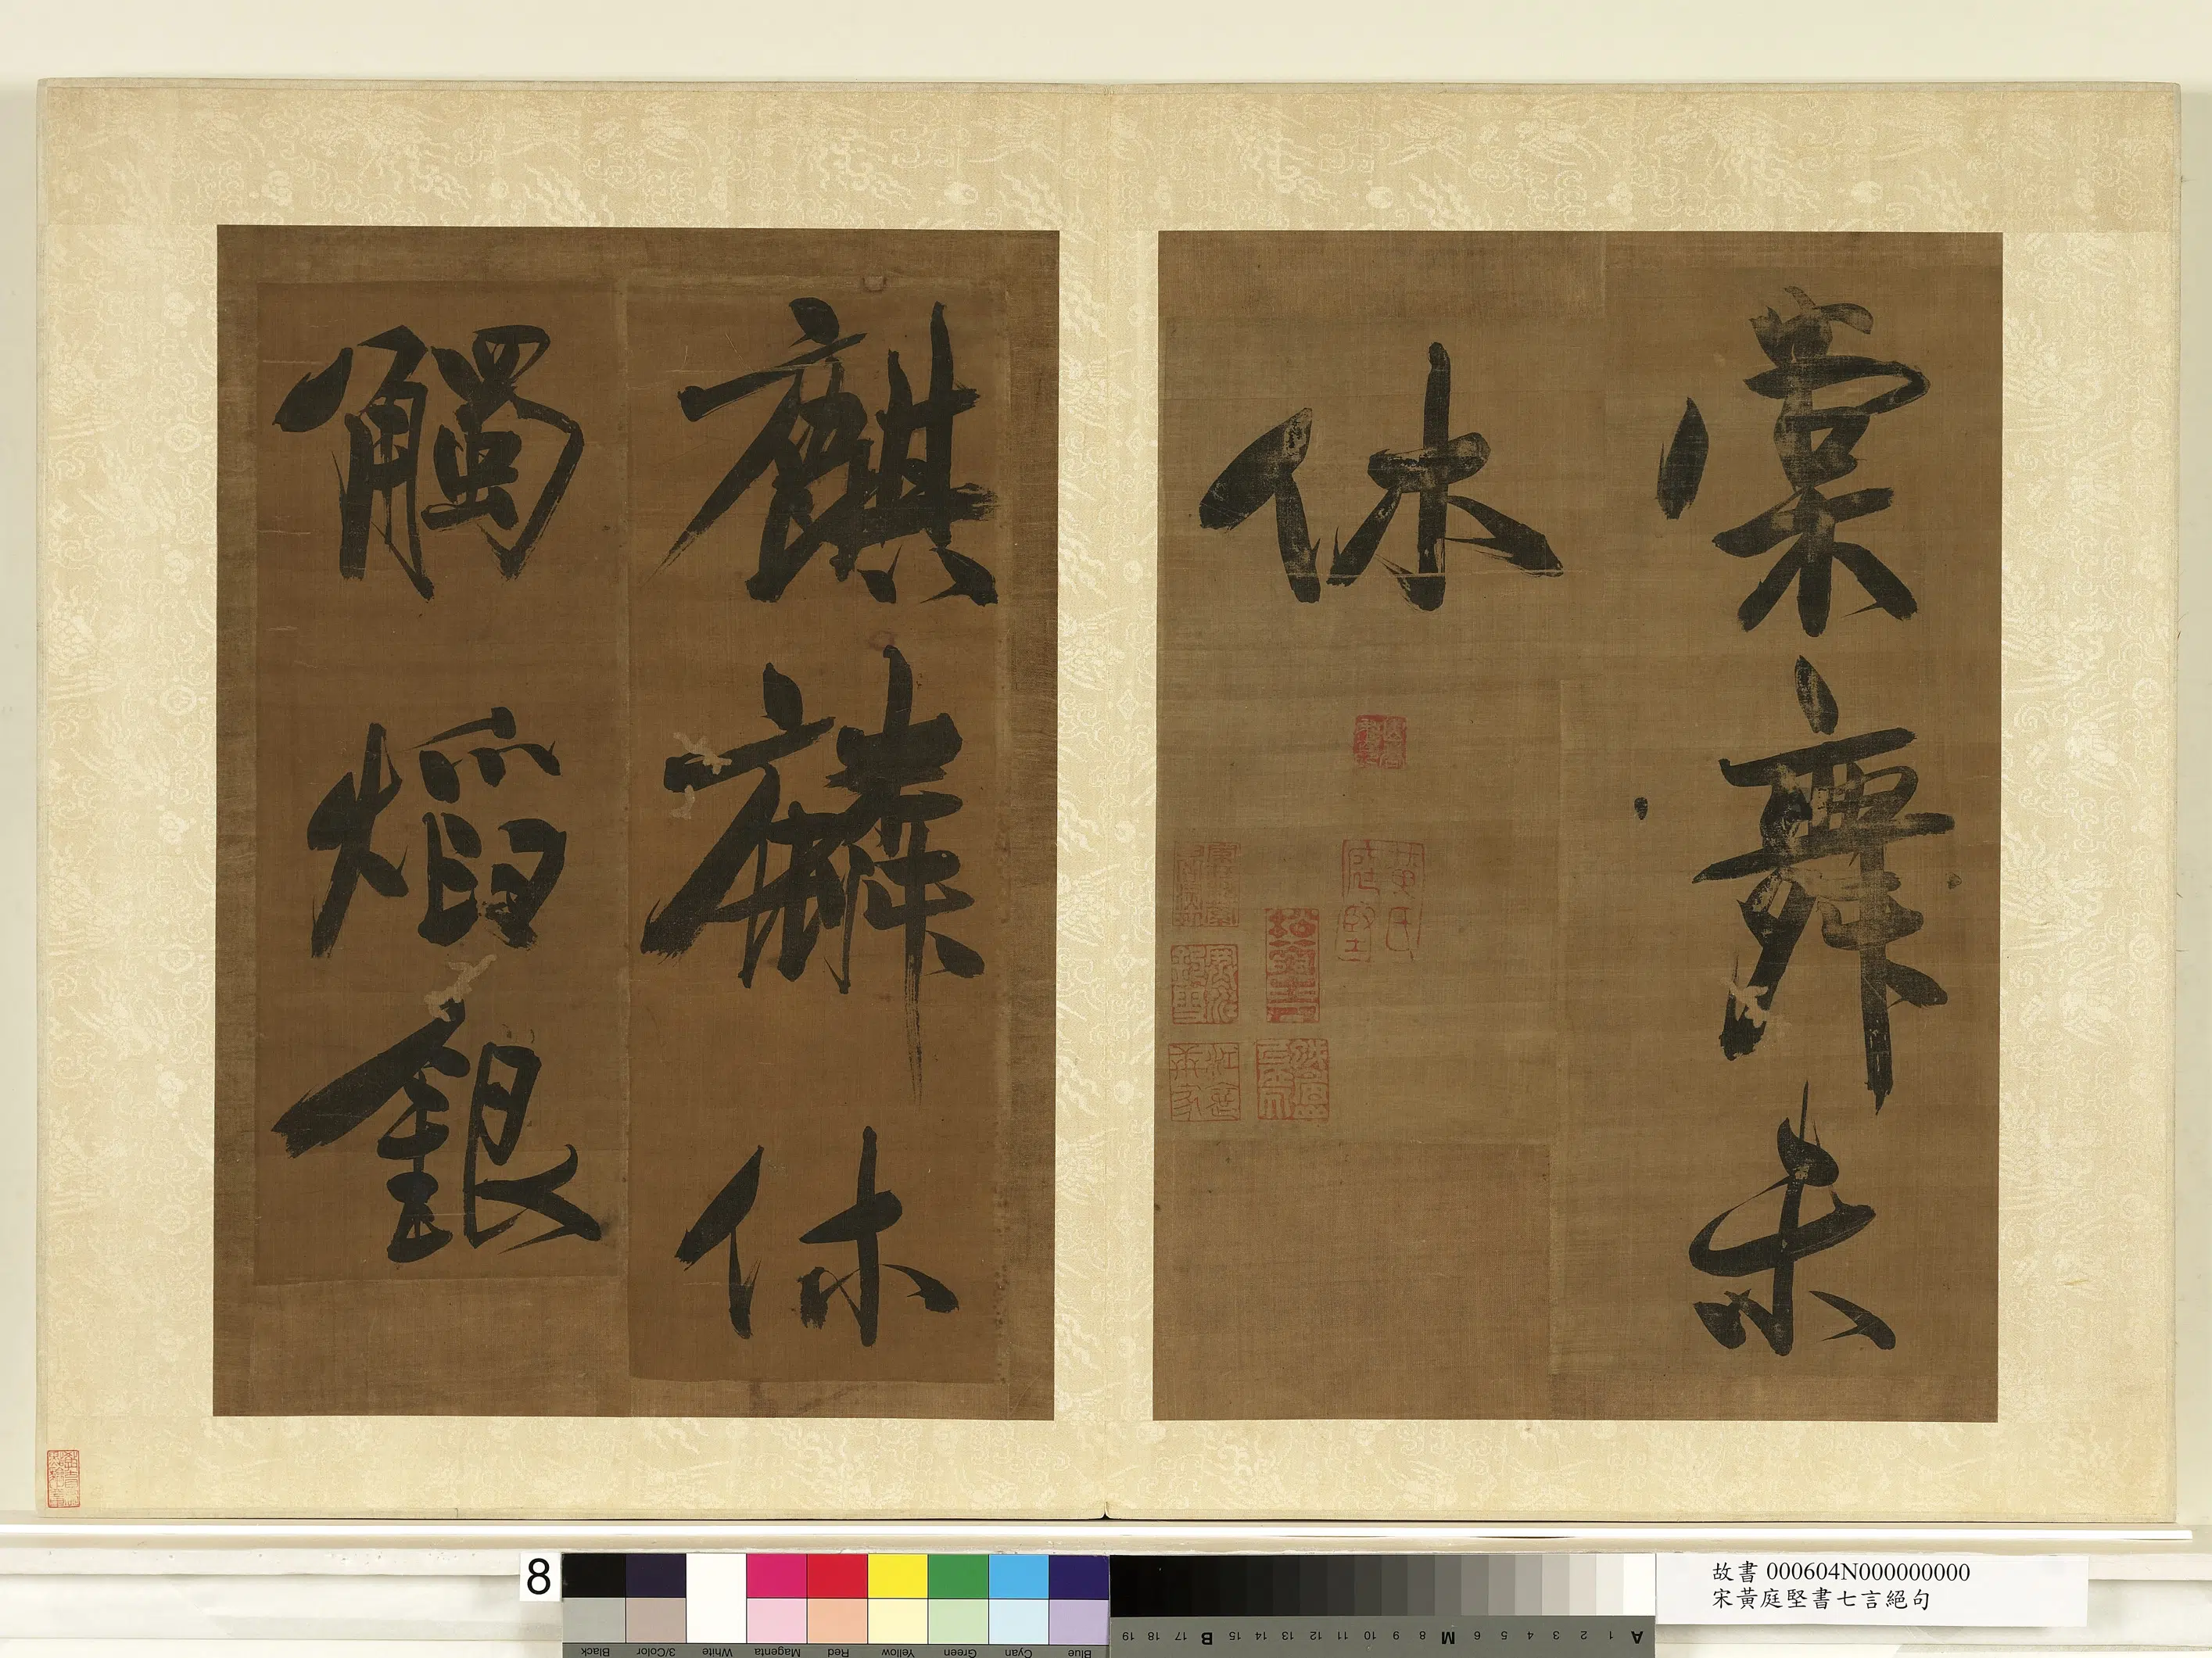 棠舞未
休
黃氏庭堅
麒麟休
觸熖銀
8
故書 000604N000000000
宋黃庭堅書七言絕句
Black
3/Color
White
Magenta
Red
Yellow
Green
Cyan
Blue
19 18 17 B 15 14 13 12 11 10 9 8 M 6 5 4 3 2 1 A